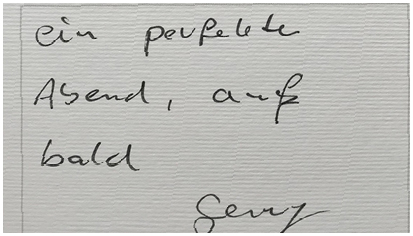 ein perfekter
Abend, auf
bald
Gerry